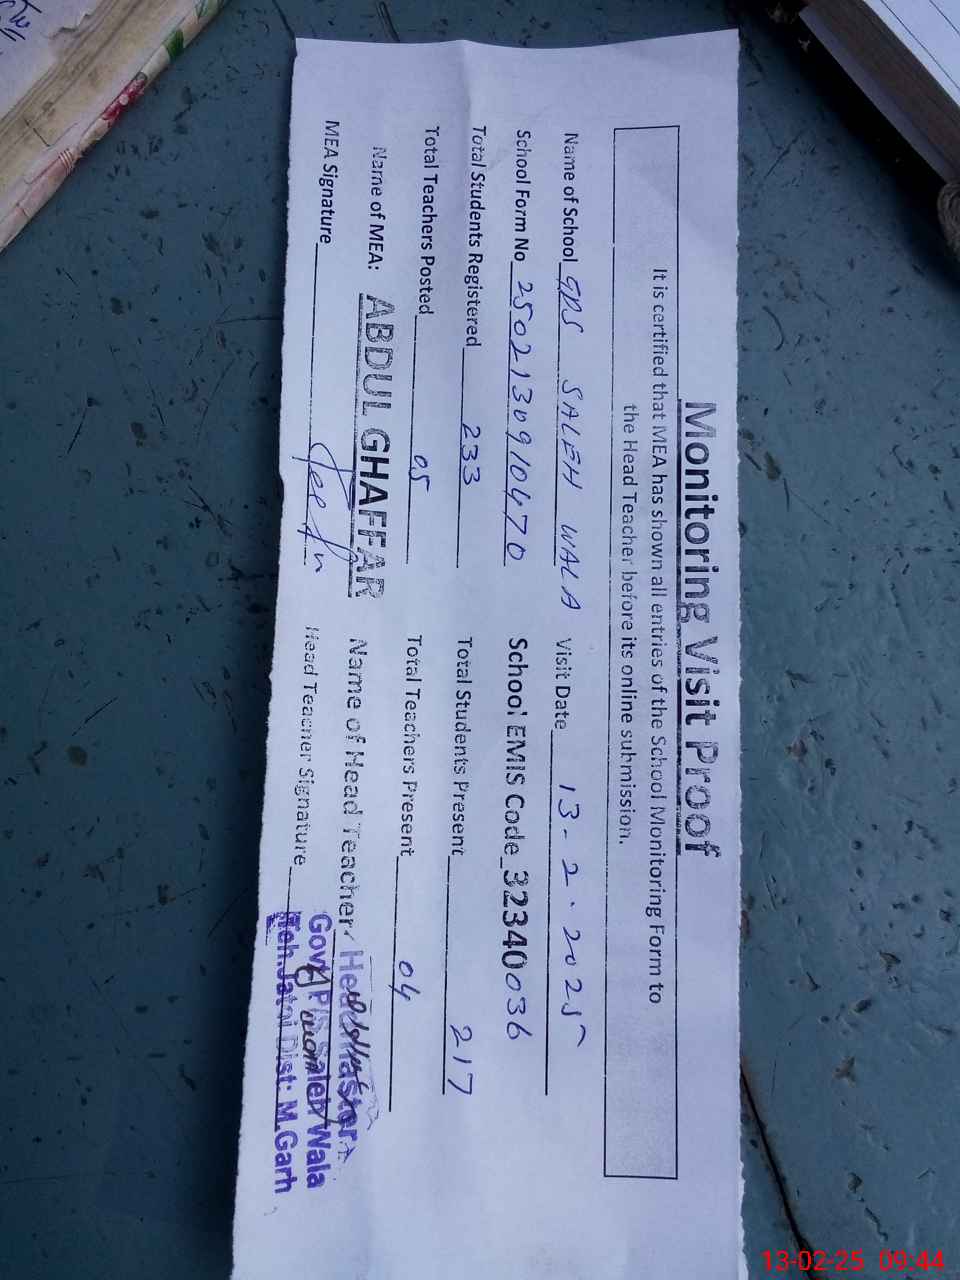 Monitoring Visit Proof
It is certified that MEA has shown all entries of the School Monitoring Form to
the Head Teacher before its online submission.
Name of School GPS SALEH WALA Visit Date 13-2-2025
School Form No 2502130910470 School EMIS Code 32340036
Total Students Registered 233 Total Students Present 217
Total Teachers Posted 05 Total Teachers Present 04
Name of MEA: ABDUL GHAFFAR Name of Head Teacher Headmaster
MEA Signature Head Teacher Signature
Govt P/S Saleh Wala
Teh. Jatoi Dist: M.Garh
13-02-25 09:44